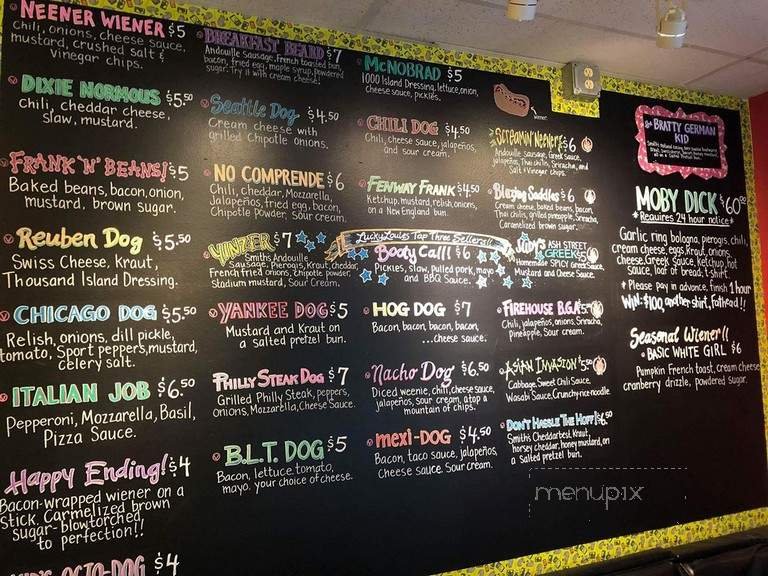 NEENER WIENER $5
Chili, onions, cheese sauce,
mustard, crushed salt &
Vinegar chips.
DIXIE NORMOUS $5.50
Chili, cheddar cheese,
slaw, mustard.
FRANK 'N' BEANS! $5
Baked beans, bacon, onion,
mustard, brown sugar.
Reuben Dog $5.50
Swiss Cheese, Kraut,
Thousand Island Dressing.
CHICAGO DOG $5.50
Relish, onions, dill pickle,
tomato, Sport peppers, mustard,
celery salt.
ITALIAN JOB $6.50
Pepperoni, Mozzarella, Basil,
Pizza Sauce.
Happy Ending! $4
Bacon-wrapped wiener on a
stick. Carmelized brown
sugar-blowtorched
to perfection!!
OCTO-DOG $4
BREAKFAST BEARD $7
Andouille Sausage, French toasted bun,
bacon, fried egg, maple syrup, powdered
sugar. Try it with cream cheese!
Seattle Dog $4.50
Cream cheese with
grilled Chipotle onions.
NO COMPRENDE $6
Chili, cheddar, Mozzarella,
Jalapeños, fried egg, bacon,
Chipotle powder, Sour cream.
YINZER $7
Smiths Andouille
Sausage, Pierogis, Kraut, cheddar,
French fried onions, chipotle powder,
Stadium mustard, Sour Cream.
YANKEE DOG $5
Mustard and Kraut on
a salted pretzel bun.
PHILLY STEAK DOG $7
Grilled Philly Steak, peppers,
onions, Mozzarella, Cheese Sauce.
B.L.T. DOG $5
Bacon, lettuce, tomato,
mayo. your choice of cheese.
McNOBRAD $5
1000 Island Dressing, lettuce, onion,
Cheese sauce, pickles.
CHILI DOG $4.50
Chili, cheese sauce, jalapeños,
and sour cream.
FENWAY FRANK $4.50
Ketchup, mustard, relish, onions,
on a New England bun.
Lucky Louies Top Three Sellers!!
Booty Call! $6
Pickles, slaw, Pulled pork, mayo
and BBQ Sauce.
HOG DOG $7
Bacon, bacon, bacon, bacon,
...cheese sauce.
Nacho Dog $6.50
Diced weenie, chili, cheese sauce,
jalapeños, sour cream, atop a
mountain of chips.
mexi-DOG $4.50
Bacon, taco sauce, jalapeños,
Cheese sauce, Sour cream.
wiener
SCREAMIN' NEENER $6
Andouille Sausage, Greek Sauce,
jalapeños, Thai chilis, Sriracha, and
Salt & Vinegar chips.
Blazing Saddles $6
Cream cheese, baked beans, bacon,
Thai chilis, grilled pineapple, Sriracha,
Caramelized brown sugar.
JUDY'S ASH STREET
GREEK $5
Homemade SPICY Greek Sauce,
Mustard and Cheese Sauce.
FIREHOUSE B.G.A. $5
Chili, jalapeños, onions, Sriracha,
Pineapple, Sour cream.
ASIAN INVASION $5.50
Cabbage, Sweet Chili Sauce,
Wasabi Sauce, Crunchy rice-noodle.
DON'T HASSLE THE HOFF! $6.50
Smiths Cheddarbest, Kraut,
horsey cheddar, honey mustard, on
a Salted pretzel bun.
BRATTY GERMAN
KID
MOBY DICK $60.00
* Requires 24 hour notice *
Garlic ring bologna, pierogis, chili,
cream cheese, eggs, Kraut, onions,
Cheese, Greek Sauce, ketchup, hot
Sauce, loaf of bread, t-shirt.
* Please pay in advance. finish 1 hour
WIN: $100, another shirt, Fathead!!
Seasonal Wiener!!
• BASIC WHITE GIRL $6
Pumpkin French toast, cream cheese,
cranberry drizzle, powdered sugar.
menupix